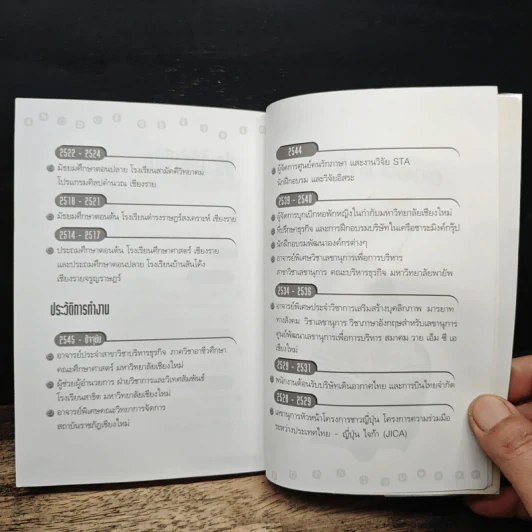 2522 - 2524
มัธยมศึกษาตอนปลาย โรงเรียนสามัคคีวิทยาคม
โปรแกรมศิลปคำนวณ เชียงราย
2518 - 2521
มัธยมศึกษาตอนต้น โรงเรียนดำรงราษฎร์สงเคราะห์ เชียงราย
2514 - 2517
ประถมศึกษาตอนต้น โรงเรียนศึกษาศาสตร์ เชียงราย
และประถมศึกษาตอนปลาย โรงเรียนบ้านสันโค้ง
เชียงรายจรูญราษฎร์
ประวัติการทำงาน
2545 - ปัจจุบัน
อาจารย์ประจำสาขาวิชาบริหารธุรกิจ ภาควิชาอาชีวศึกษา
คณะศึกษาศาสตร์ มหาวิทยาลัยเชียงใหม่
ผู้ช่วยผู้อำนวยการ ฝ่ายวิชาการและวิเทศสัมพันธ์
โรงเรียนสาธิต มหาวิทยาลัยเชียงใหม่
อาจารย์พิเศษคณะวิทยาการจัดการ
สถาบันราชภัฏเชียงใหม่
2544
ผู้จัดการศูนย์คนรักภาษา และงานวิจัย STA
นักฝึกอบรม และวิจัยอิสระ
2538 - 2540
ผู้จัดการบุกเบิกหอพักหญิงในกำกับมหาวิทยาลัยเชียงใหม่
ที่ปรึกษาธุรกิจ และการฝึกอบรมบริษัทในเครือชาระมิงค์กรุ๊ป
นักฝึกอบรมพัฒนาองค์กรต่างๆ
อาจารย์พิเศษวิชาเลขานุการเพื่อการบริหาร
ภาควิชาเลขานุการ คณะบริหารธุรกิจ มหาวิทยาลัยพายัพ
2534 - 2536
อาจารย์พิเศษประจำวิชาการเสริมสร้างบุคลิกภาพ มารยาท
ทางสังคม วิชาเลขานุการ วิชาภาษาอังกฤษสำหรับเลขานุการ
ศูนย์พัฒนาเลขานุการเพื่อการบริหาร สมาคม วาย เอ็ม ซี เอ
เชียงใหม่
2529 - 2531
พนักงานต้อนรับบริษัทเดินอากาศไทย และการบินไทยจำกัด
2528 - 2529
เลขานุการหัวหน้าโครงการชาวญี่ปุ่น โครงการความร่วมมือ
ระหว่างประเทศไทย - ญี่ปุ่น ไจก้า (JICA)